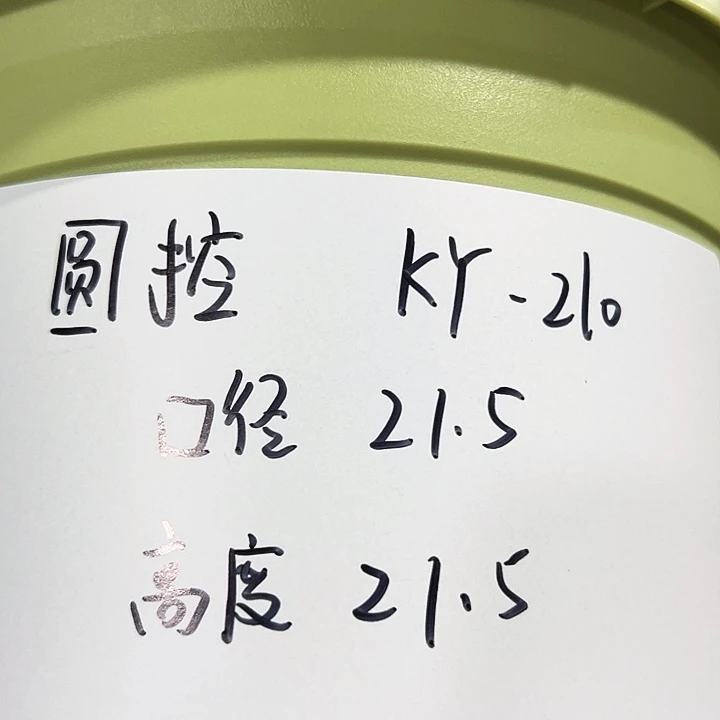 圆控 KY-210
口径 21.5
高度 21.5